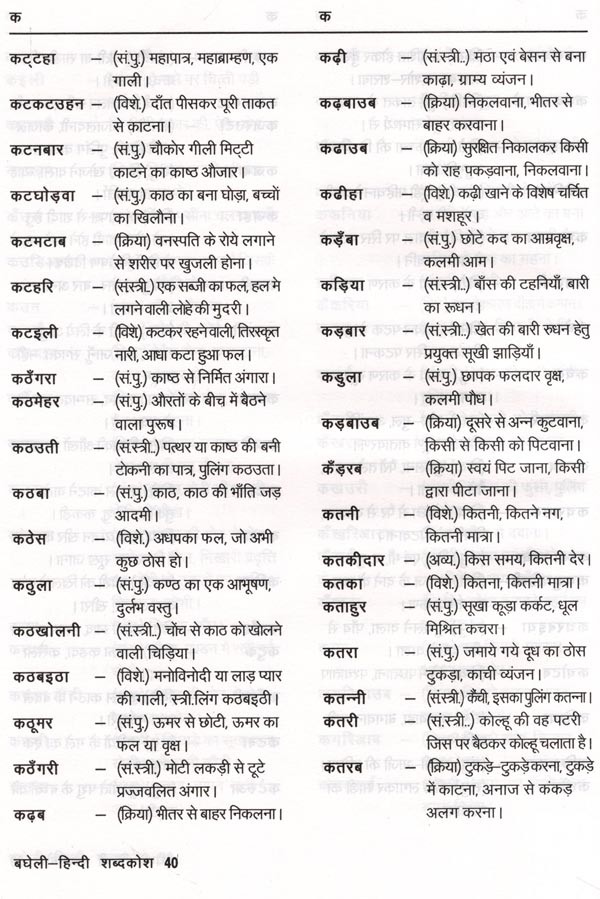 क क
कट्टहा – (सं.पु.) महापात्र, महाब्राम्हण, एक
गाली।
कटकटउहन – (विशे.) दाँत पीसकर पूरी ताकत
से काटना।
कटनबार – (सं.पु.) चौकोर गीली मिट्टी
काटने का काष्ठ औजार।
कटघोड़वा – (सं.पु.) काठ का बना घोड़ा, बच्चों
का खिलौना।
कटमटाब – (क्रिया) वनस्पति के रोये लगाने
से शरीर पर खुजली होना।
कटहरि – (सं.स्त्री.) एक सब्जी का फल, हल मे
लगने वाली लोहे की मुदरी।
कटइली – (विशे.) कटकर रहने वाली, तिरस्कृत
नारी, आधा कटा हुआ फल।
कठँगरा – (सं.पु.) काष्ठ से निर्मित अंगारा।
कठमेहर – (सं.पु.) औरतों के बीच में बैठने
वाला पुरूष।
कठउती – (सं.स्त्री..) पत्थर या काष्ठ की बनी
टोकनी का पात्र, पुलिंग कठउता।
कठबा – (सं.पु.) काठ, काठ की भाँति जड़
आदमी।
कठेस – (विशे.) अधपका फल, जो अभी
कुछ ठोस हो।
कठुला – (सं.पु.) कण्ठ का एक आभूषण,
दुर्लभ वस्तु।
कठखोलनी – (सं.स्त्री..) चोंच से काठ को खोलने
वाली चिड़िया।
कठबइठा – (विशे.) मनोविनोदी या लाड़ प्यार
की गाली, स्त्री.लिंग कठबइठी।
कठूमर – (सं.पु.) ऊमर से छोटी, ऊमर का
फल या वृक्ष।
कठँगरी – (सं.स्त्री.) मोटी लकड़ी से टूटे
प्रज्जवलित अंगार।
कढ़ब – (क्रिया) भीतर से बाहर निकलना।
कढ़ी – (सं.स्त्री..) मठा एवं बेसन से बना
काढ़ा, ग्राम्य व्यंजन।
कढ़बाउब – (क्रिया) निकलवाना, भीतर से
बाहर करवाना।
कढाउब – (क्रिया) सुरक्षित निकालकर किसी
को राह पकड़वाना, निकलवाना।
कढीहा – (विशे.) कढ़ी खाने के विशेष चर्चित
व मशहूर।
कड़ँबा – (सं.पु.) छोटे कद का आम्रवृक्ष,
कलमी आम।
कड़िया – (सं.स्त्री..) बाँस की टहनियाँ, बारी
का रूधन।
कड़बार – (सं.स्त्री..) खेत की बारी रूधन हेतु
प्रयुक्त सूखी झाड़ियाँ।
कडुला – (सं.पु.) छापक फलदार वृक्ष,
कलमी पौध।
कड़बाउब – (क्रिया) दूसरे से अन्न कुटवाना,
किसी से किसी को पिटवाना।
कँड़रब – (क्रिया) स्वयं पिट जाना, किसी
द्वारा पीटा जाना।
कतनी – (विशे.) कितनी, कितने नग,
कितनी मात्रा।
कतकीदार – (अव्य.) किस समय, कितनी देर।
कतका – (विशे.) कितना, कितनी मात्रा।
कताहुर – (सं.पु.) सूखा कूड़ा कर्कट, धूल
मिश्रित कचरा।
कतरा – (सं.पु.) जमाये गये दूध का ठोस
टुकड़ा, काची व्यंजन।
कतन्नी – (सं.स्त्री.) कैंची, इसका पुलिंग कतन्ना।
कतरी – (सं.स्त्री..) कोल्हू की वह पटरी
जिस पर बैठकर कोल्हू चलाता है।
कतरब – (क्रिया) टुकड़े–टुकड़े करना, टुकड़े
में काटना, अनाज से कंकड़
अलग करना।
बघेली–हिन्दी शब्दकोश 40